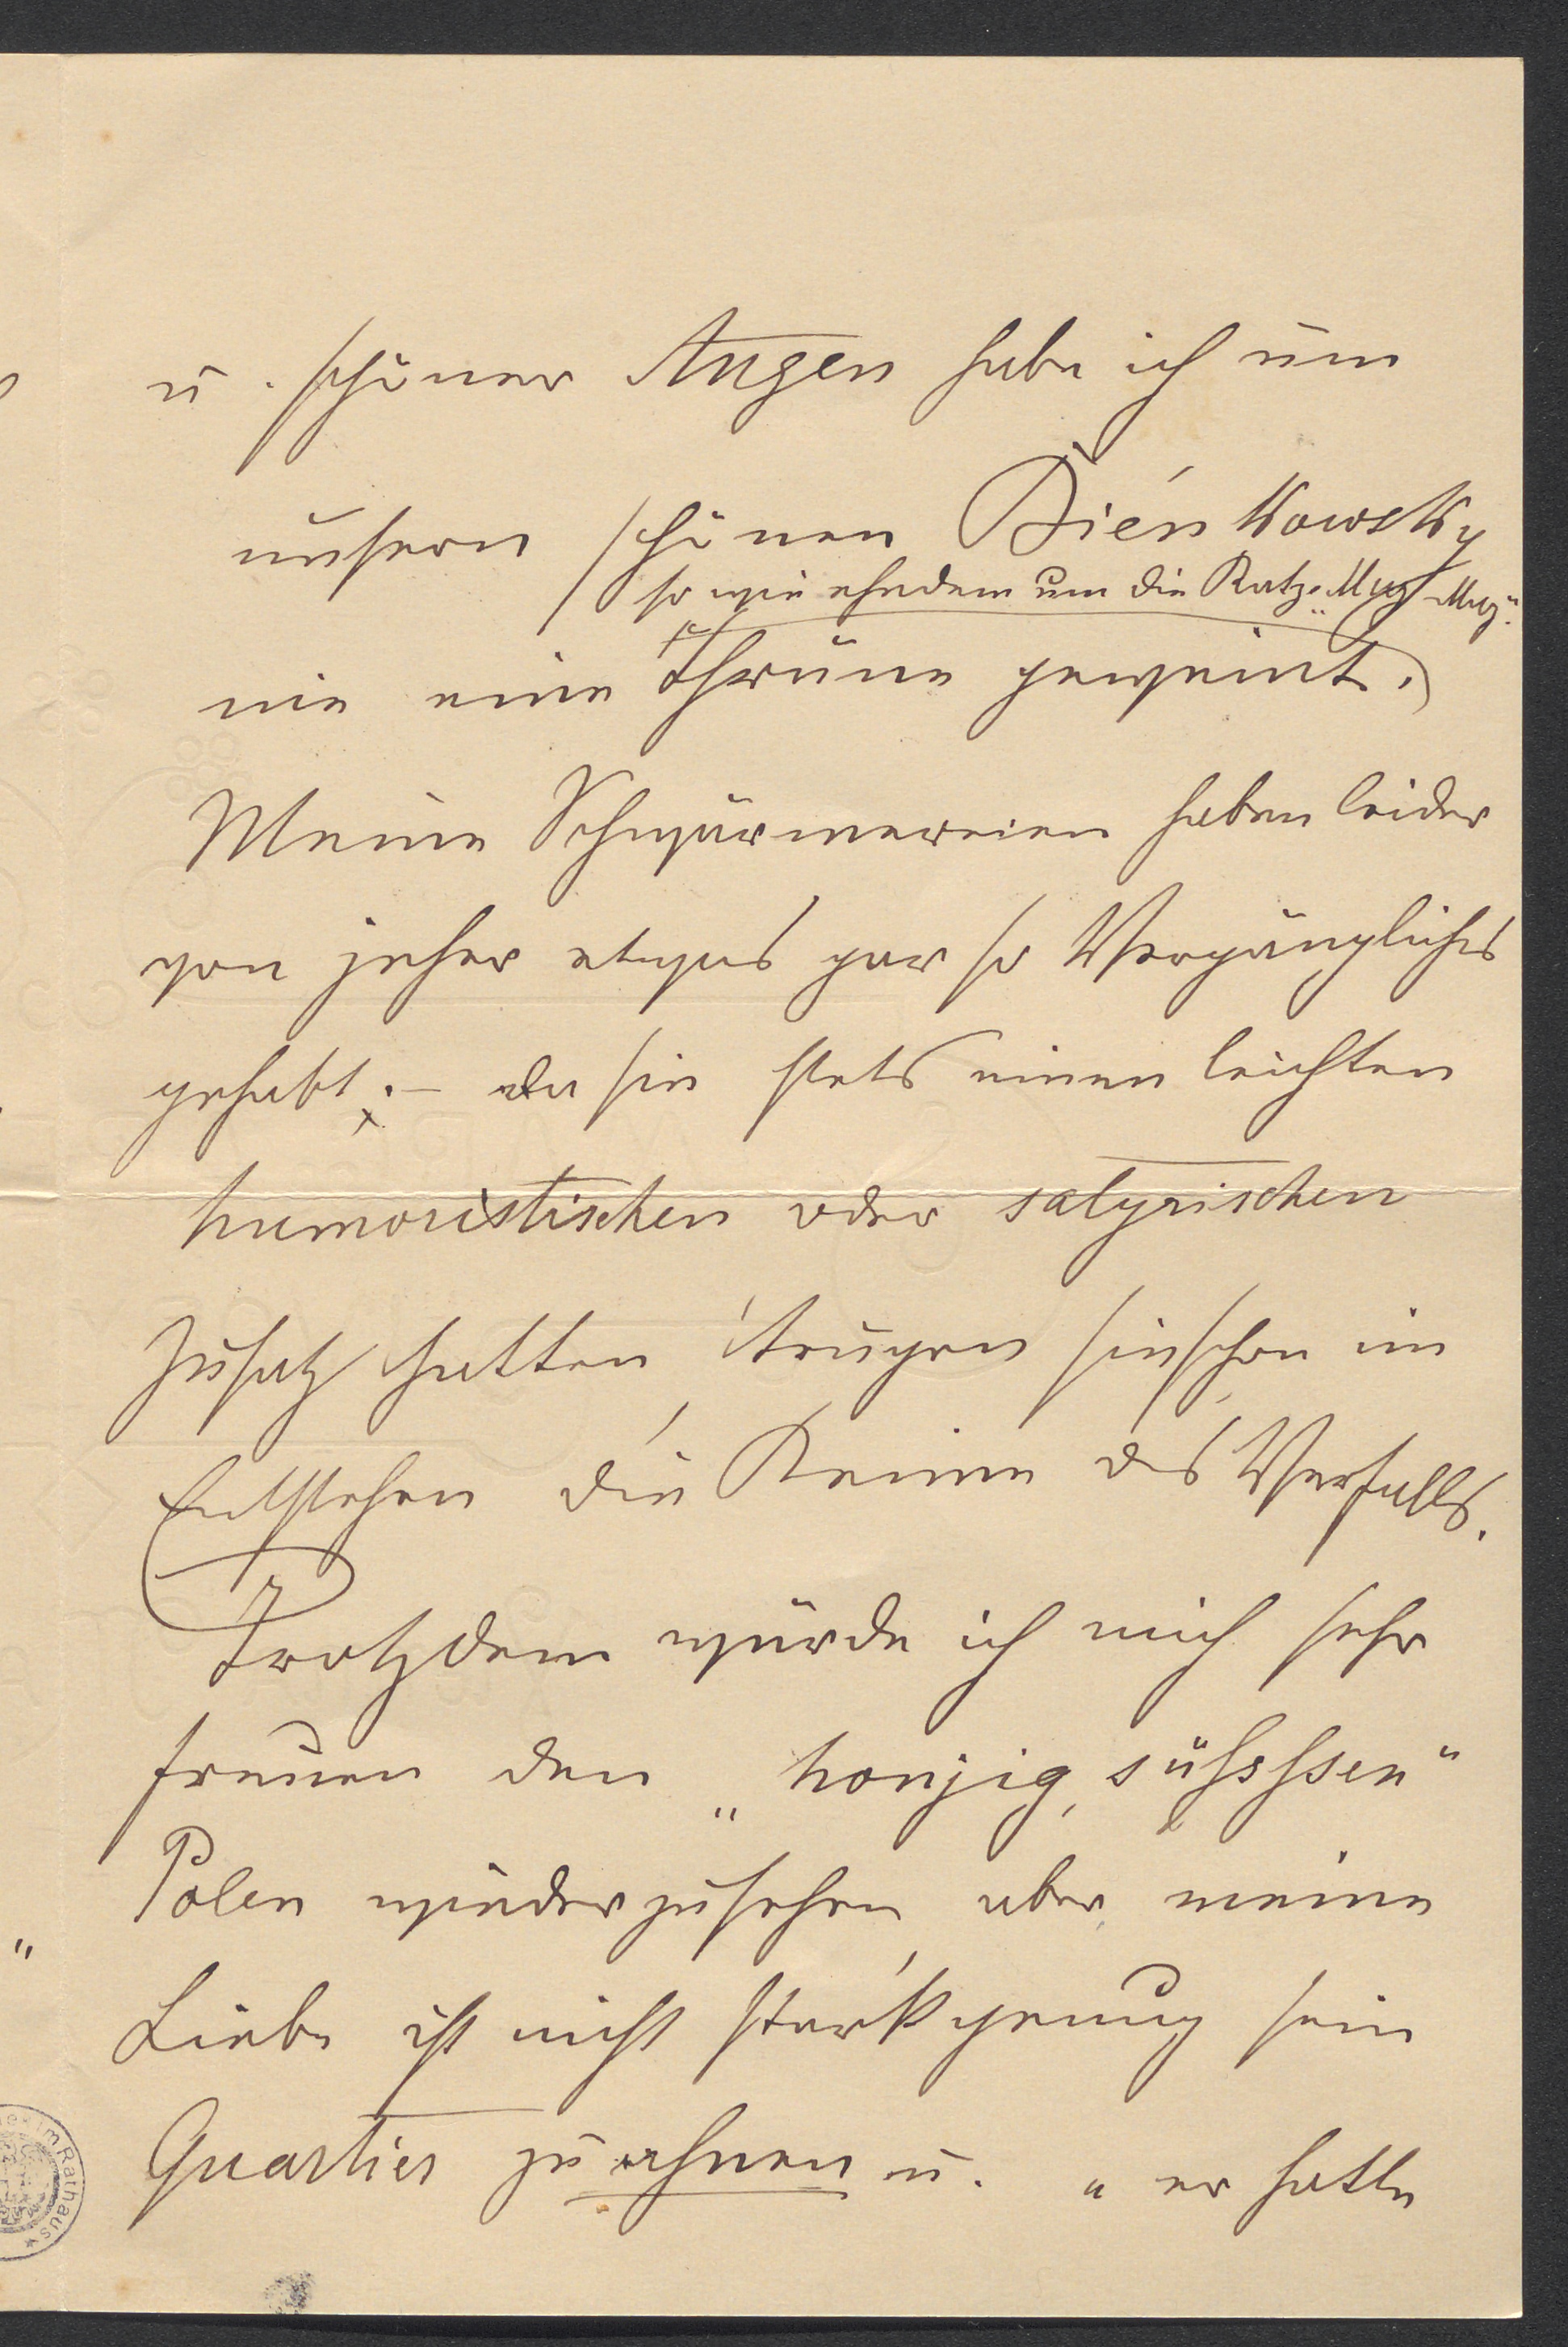 u. schöner Augen habe ich um
unsern schönen Bieńkowsky
so wie ehedem um die Katz „Muz-Muz“
nie eine Thräne geweint.
Meine Schwärmereien haben leider
von jeher etwas gar so Vergängliches
gehabt; – da sie stets einen leichten
humoristischen oder satyrischen
Zusatz hatten, trugen sie schon im
Entstehen die Keime des Verfalls.
Trotzdem würde ich mich sehr
freuen den „honjig, süßssen“
Polen wiederzusehen, aber meine
Liebe ist nicht stark genug sein
Quartier zu ahnen u. „er hatte
im Rathaus